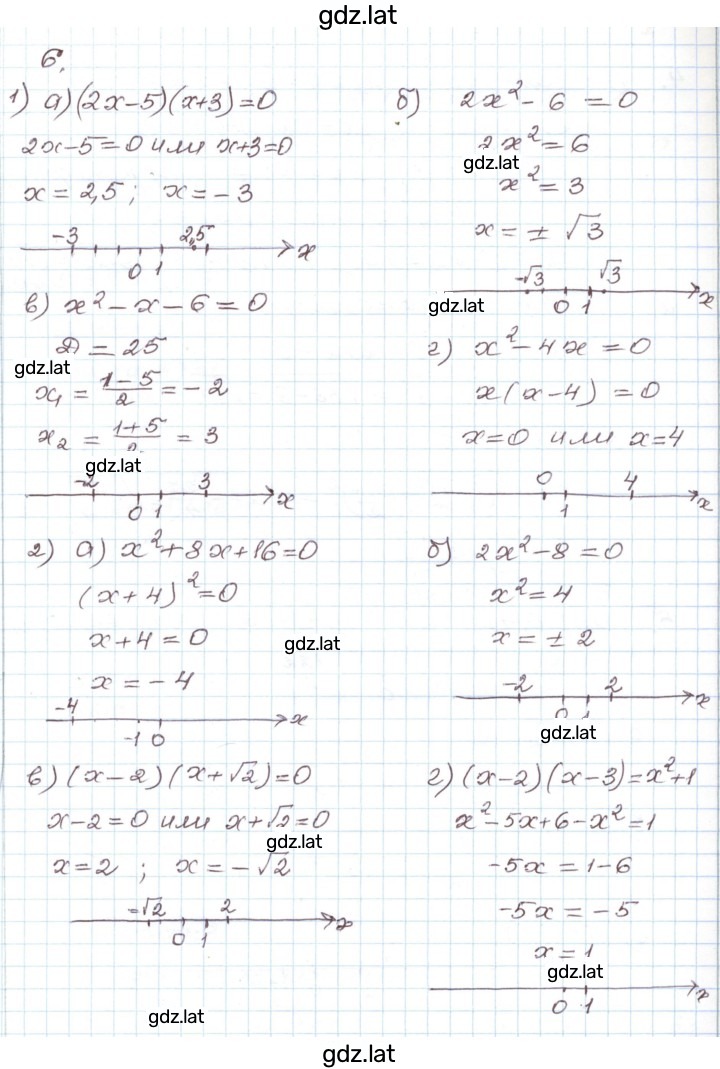 gdz.lat
6.
1) а) (2x-5)(x+3)=0
2x-5=0 или x+3=0
x = 2,5 ; x = -3
-3 2,5
0 1 x
б) 2x² - 6 = 0
2x² = 6
gdz.lat
x² = 3
x = ± √3
-√3 √3
gdz.lat 0 1 x
в) x² - x - 6 = 0
D = 25
gdz.lat
x₁ = (1-5)/2 = -2
x₂ = (1+5)/2 = 3
gdz.lat
-2 3
0 1 x
г) x² - 4x = 0
x(x-4) = 0
x=0 или x=4
0 4
1 x
2) а) x²+8x+16=0
(x+4)²=0
x+4=0
gdz.lat
x = -4
-4 x
-1 0
б) 2x²-8=0
x²=4
x = ± 2
-2 2 x
0 1
gdz.lat
в) (x-2)(x+√2)=0
x-2=0 или x+√2=0
gdz.lat
x=2 ; x = -√2
-√2 2 x
0 1
gdz.lat
г) (x-2)(x-3)=x²+1
x²-5x+6-x²=1
-5x = 1-6
-5x = -5
x = 1
gdz.lat
0 1 x
gdz.lat